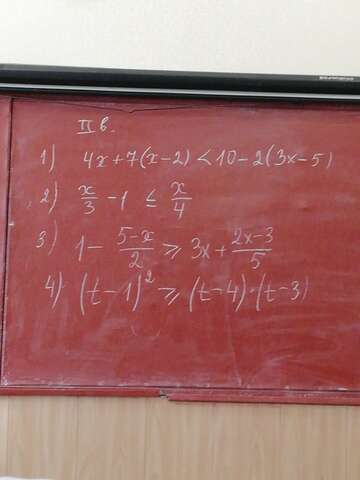 II в.
1) 4x+7(x-2)<10-2(3x-5)
2) x/3 -1 ≤ x/4
3) 1- (5-x)/2 ≥ 3x+ (2x-3)/5
4) (t-1)² ≥ (t-4)·(t-3)